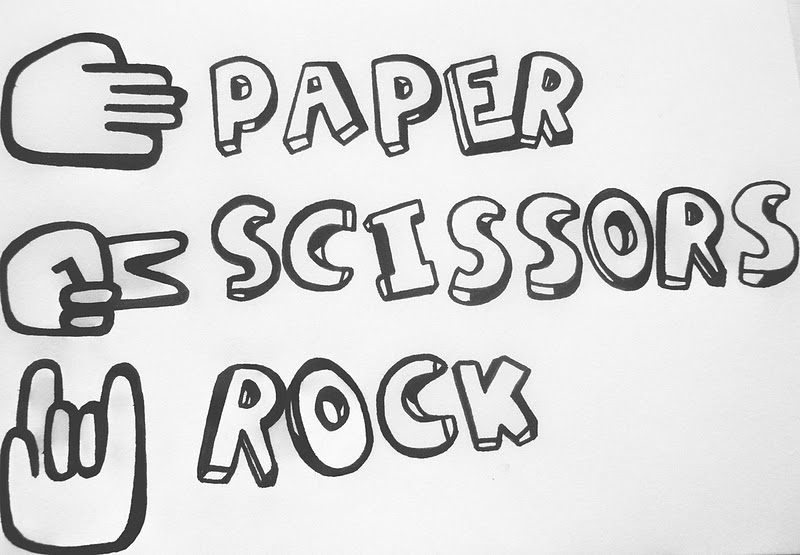 PAPER
SCISSORS
ROCK